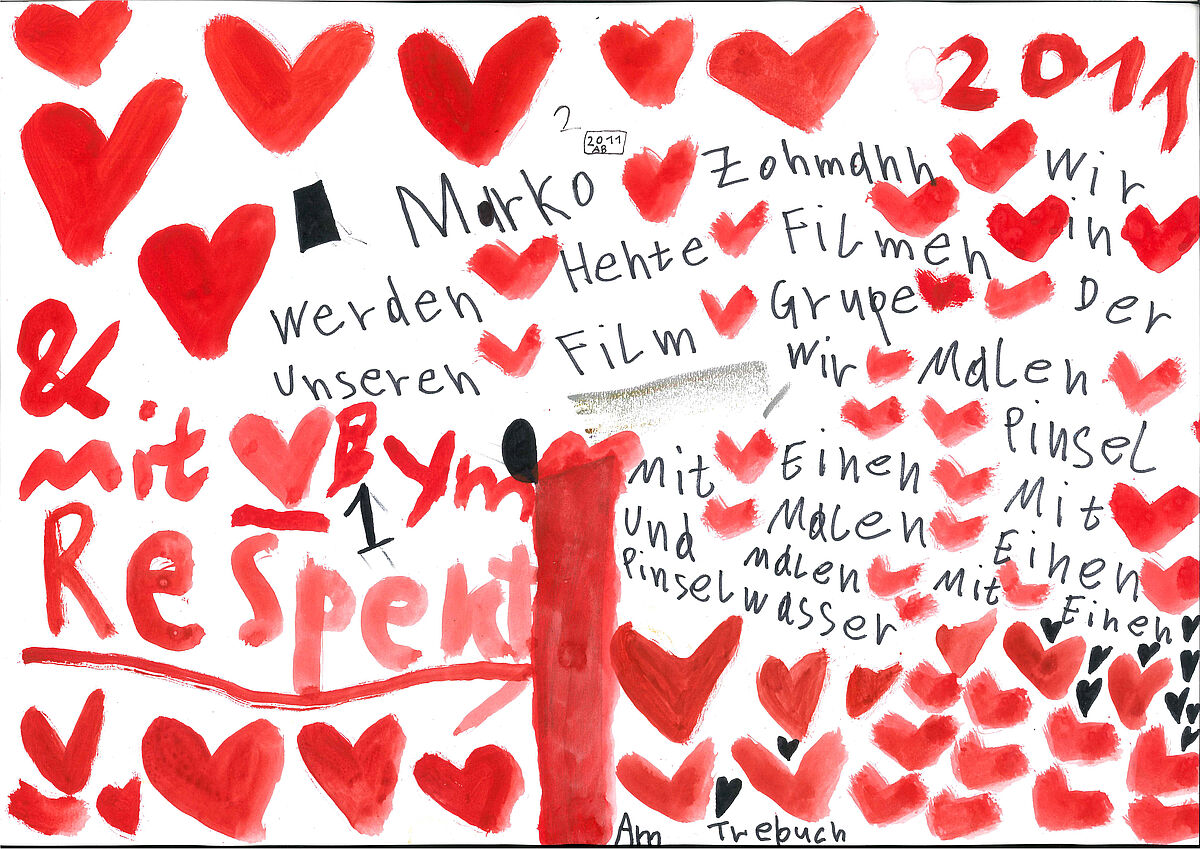 2011
2
2011
AB
Marko Zohmann Wir
werden Hehte Filmen in
unseren Film Grupe Der
wir Malen
& mit Bym Mit Einen Pinsel
1
Respekt und Malen Mit
Malen Mit Einen
Pinselwasser Einen
Am Trebuch